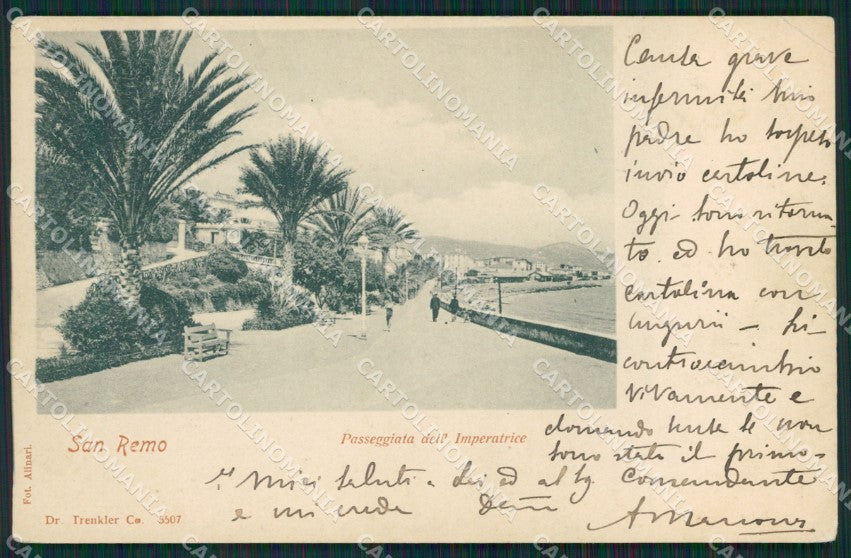 Causa grave
infermità mio
padre ho sospeso
invio cartoline.
Oggi sono ritorna
to ed ho trovato
cartolina con
auguri – li
contraccambio
vivamente e
domando scusa se non
sono stato il primo –
San Remo
Passeggiata dell' Imperatrice
Miei saluti a Lei ed al Sig. Comandante
e mi creda Dev.mo
Fot. Alinari.
Dr. Trenkler Co. 5507
CARTOLINOMANIA